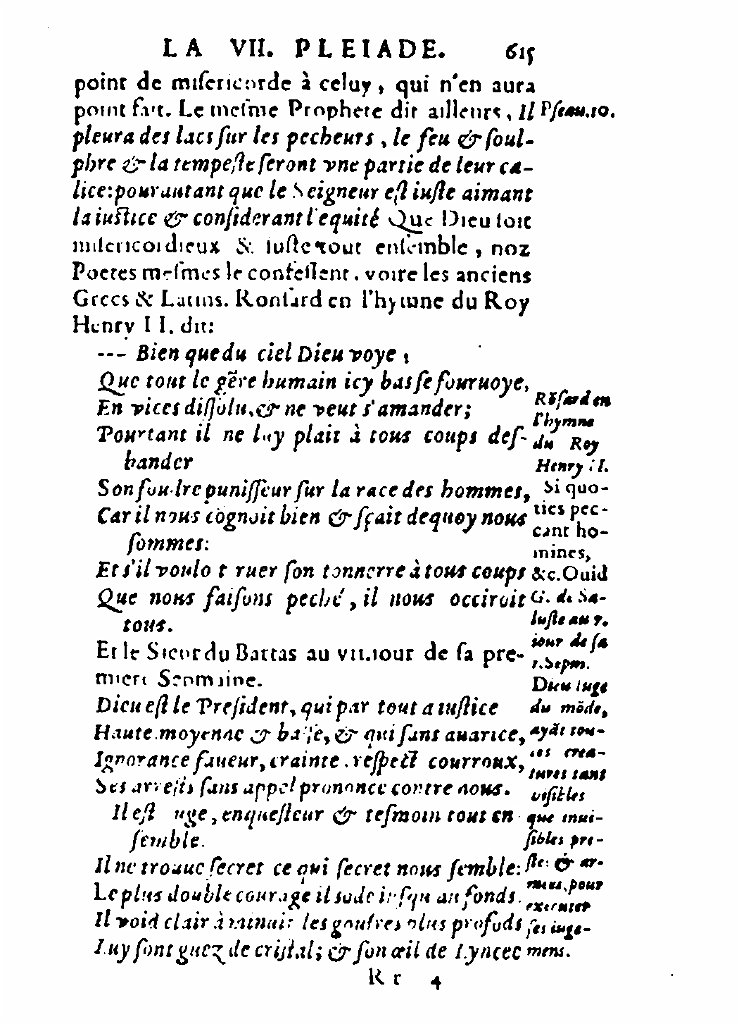 LA VII. PLEIADE. 615
point de misericorde à celuy, qui n'en aura
point fait. Le mesme Prophete dit ailleurs, Il
pleura des lacs sur les pecheurs, le feu & soul-
phre & la tempeste seront vne partie de leur ca-
lice: pourautant que le Seigneur est iuste aimant
la iustice & considerant l'equité Que Dieu soit
misericordieux & iuste tout ensemble, noz
Poetes mesmes le confessent, voire les anciens
Grecs & Latins. Ronsard en l'hymne du Roy
Henry II. dit:
--- Bien que du ciel Dieu voye,
Que tout le gẽre humain icy bas se fouruoye,
En vices dissolu, & ne veut s'amander;
Pourtant il ne luy plait à tous coups des-
bander
Son foudre punisseur sur la race des hommes,
Car il nous cognoit bien & sçait dequoy nous
sommes:
Et s'il vouloit ruer son tonnerre à tous coups
Que nous faisons peché, il nous occiroit
tous.
Et le Sieur du Bartas au VII. iour de sa pre-
miere Sepmaine.
Dieu est le President, qui par tout a iustice
Haute moyenne & basse, & qui sans auarice,
Ignorance faueur, crainte, respect courroux,
Ses arrests sans appel prononce contre nous.
Il est iuge, enquesteur & tesmoin tout en
semble.
Il ne trouue secret ce qui secret nous semble:
Le plus double courage il sonde iusqu'au fonds
Il void clair à minuit les goufres plus profõds
Luy sont guez de cristal; & son œil de Lyncee
Pseau. 10.
Rõsard en
l'hymne
du Roy
Henry II.
Si quo-
ties pec-
cant ho-
mines,
&c. Ouid
G. de Sa-
luste au 7.
iour de sa
1. Sepm.
Dieu iuge
du mõde,
ayãt tou-
tes crea-
tures tant
visibles
que inui-
sibles pre-
ste: & ar-
mees, pour
executer
ses iuge-
mens.
Rr 4